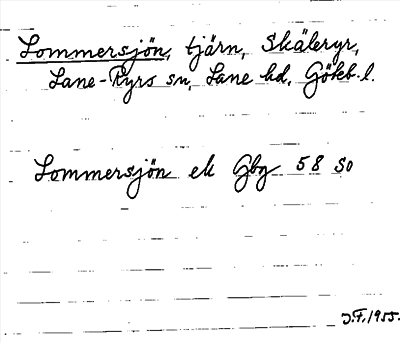 Lommersjön, tjärn, Skäleryr,
Lane-Ryrs sn, Lane hd, Göteb. l.
Lommersjön ek Gbg 58 SO
J.F. 1955.